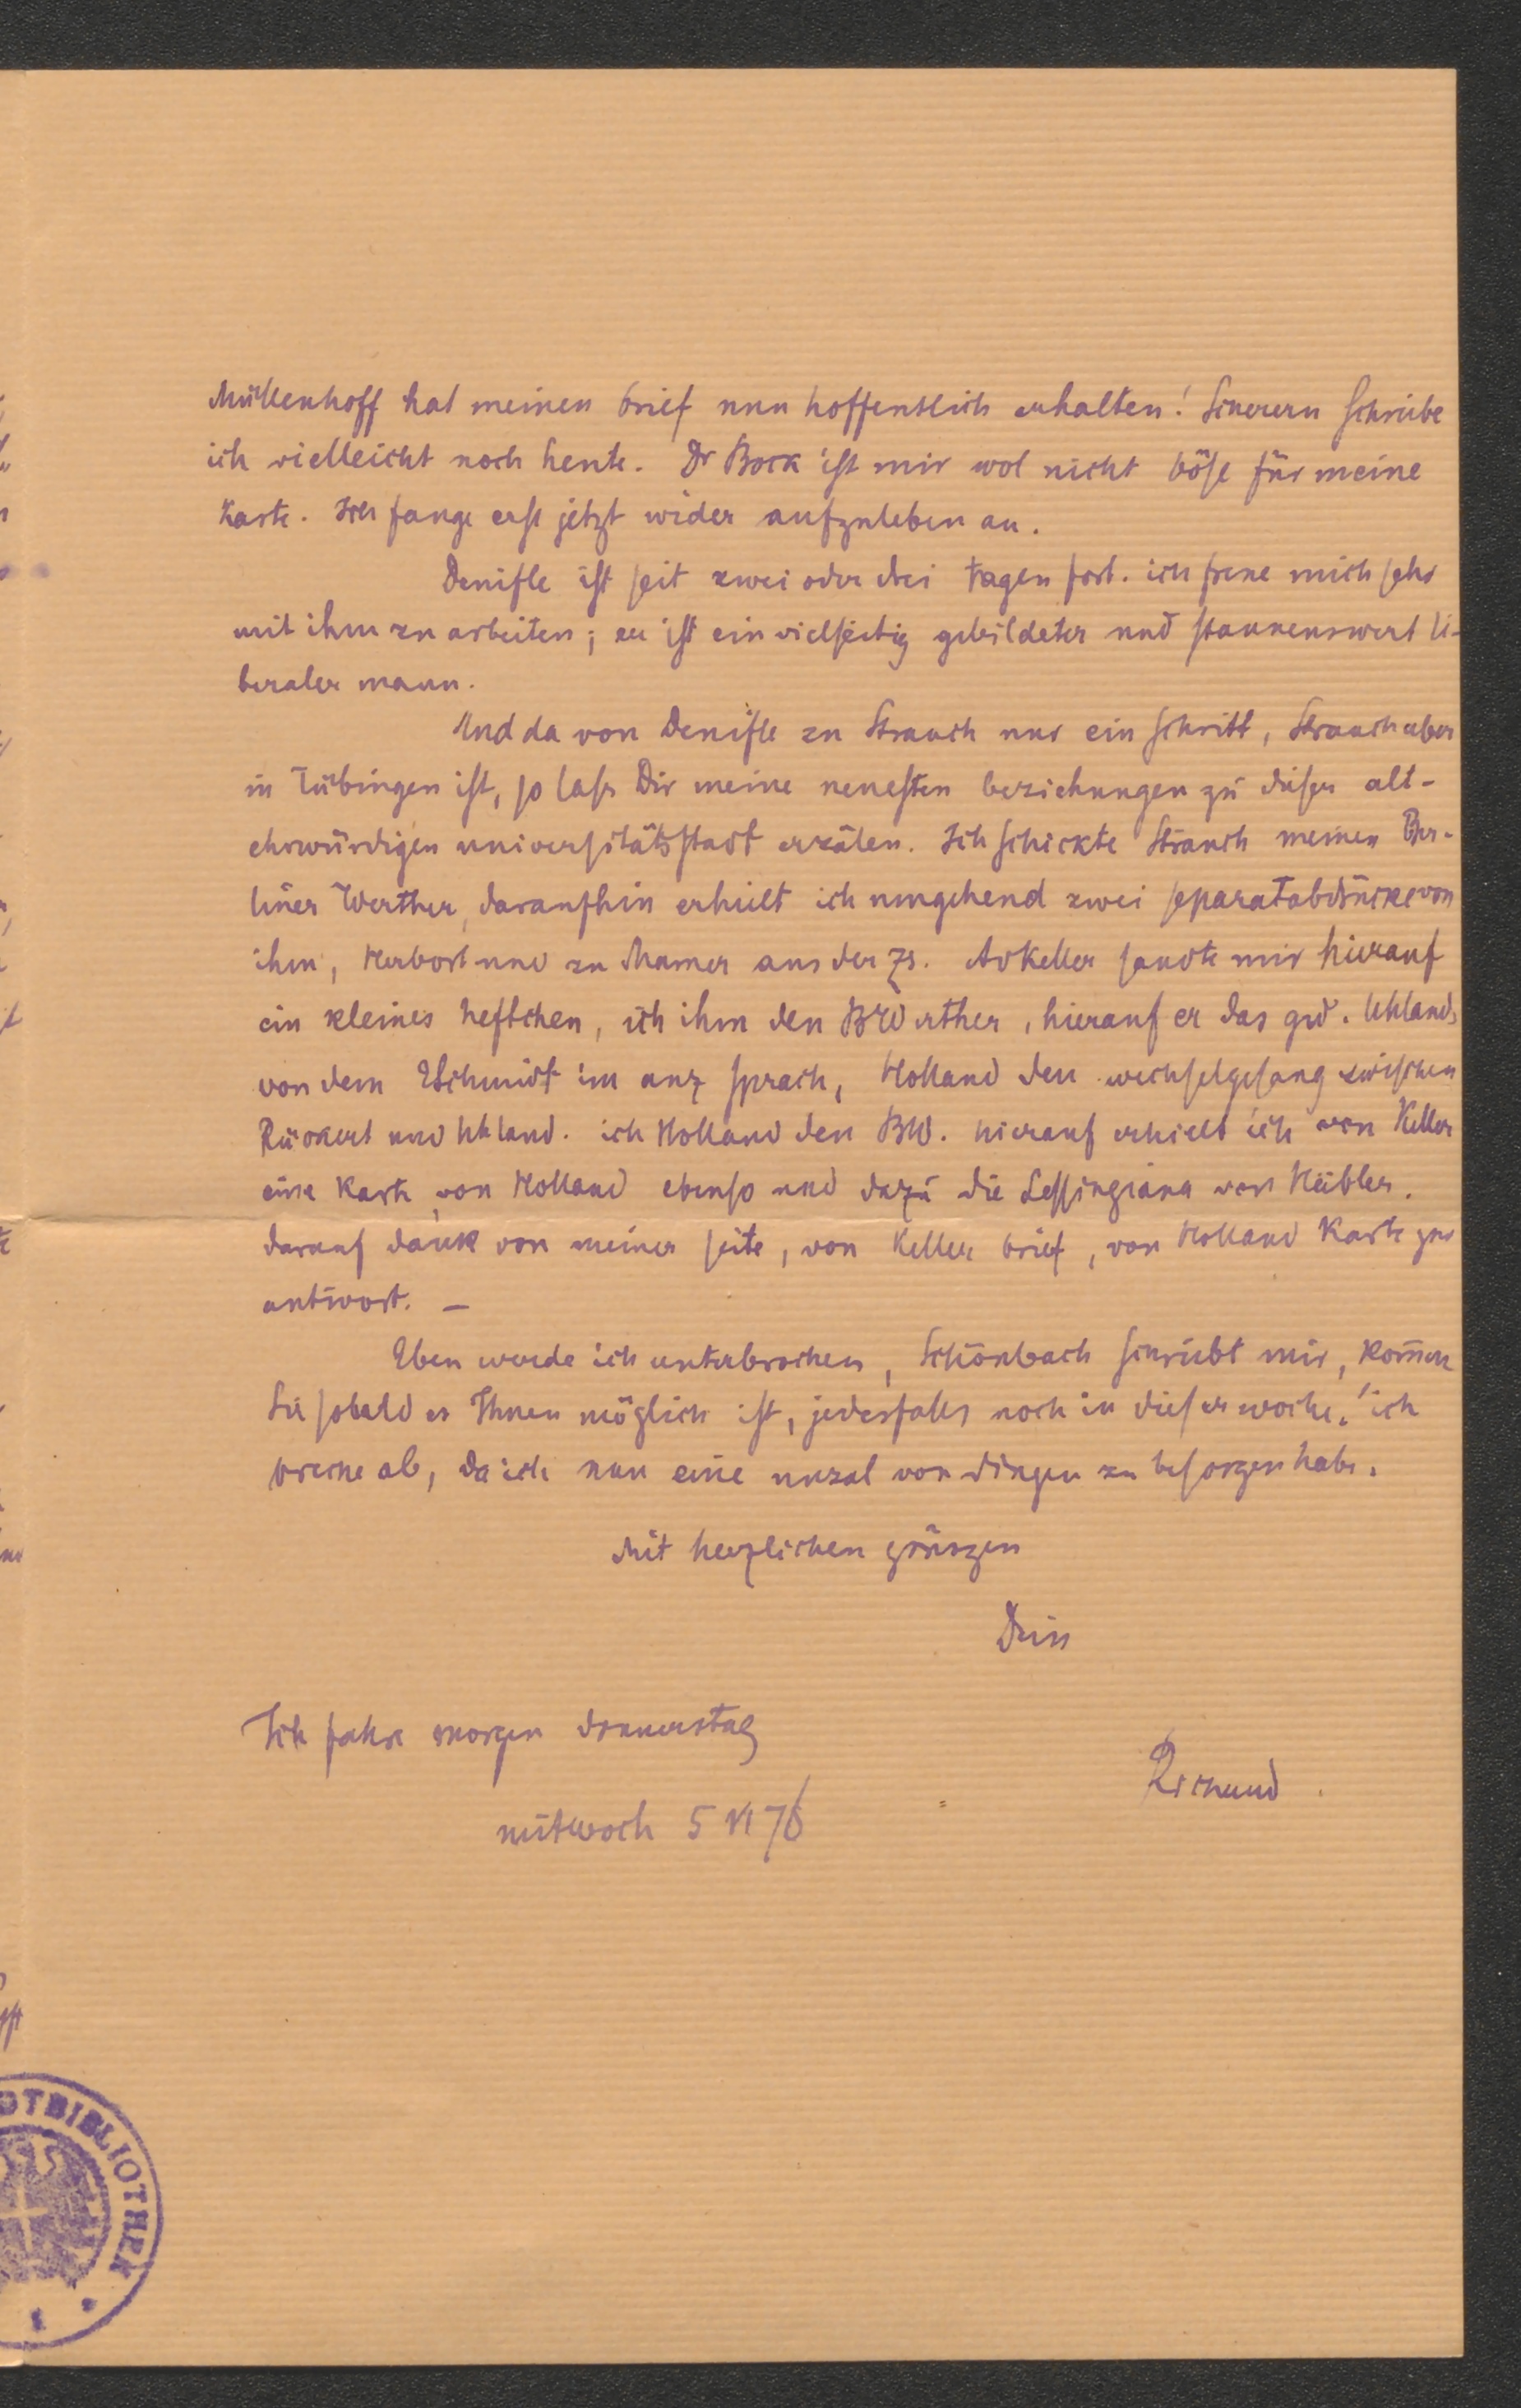 Müllenhoff hat meinen brief nun hoffentlich erhalten! Scherern schreibe
ich vielleicht noch heute. Dr Bock ist mir wol nicht böse für meine
karte. Ich fange erst jetzt wider aufzuleben an.
Denifle ist seit zwei oder drei tagen fort. ich freue mich sehr
mit ihm zu arbeiten; er ist ein vielseitig gebildeter und staunenswert li-
beraler mann.
Und da von Denifle zu Strauch nur ein schritt, Strauch aber
in Tübingen ist, so lass Dir meine neuesten beziehungen zu diser alt-
ehrwürdigen universitätsstadt erzälen. Ich schickte Strauch meinen Ber-
liner Werther, daraufhin erhielt ich umgehend zwei separatabdrücke von
ihm, Herbort und zu Marner aus der Zs. AvKeller sandte mir hierauf
ein kleines heftchen, ich ihm den BWerther, hierauf er das gid. Uhlands
von dem ESchmidt im anz sprach, Holland den wechselgesang zwischen
Rückert und Uhland. ich Holland den BW. hierauf erhielt ich von Keller
eine karte, von Holland ebenso und dazu die Lessingiana von Heibler.
darauf dank von meiner seite, von Keller brief, von Holland karte zur
antwort. –
Eben werde ich unterbrochen, Schönbach schreibt mir, kom̄en
Sie sobald es Ihnen möglich ist, jedesfalls noch in dieser woche." ich
breche ab, da ich nun eine unzal von dingen zu besorgen habe.
Mit herzlichen grüszen
Dein
Ich fahre morgen donnerstag
Richard.
mitwoch 5 VI 78
TBIBLIOTHEK